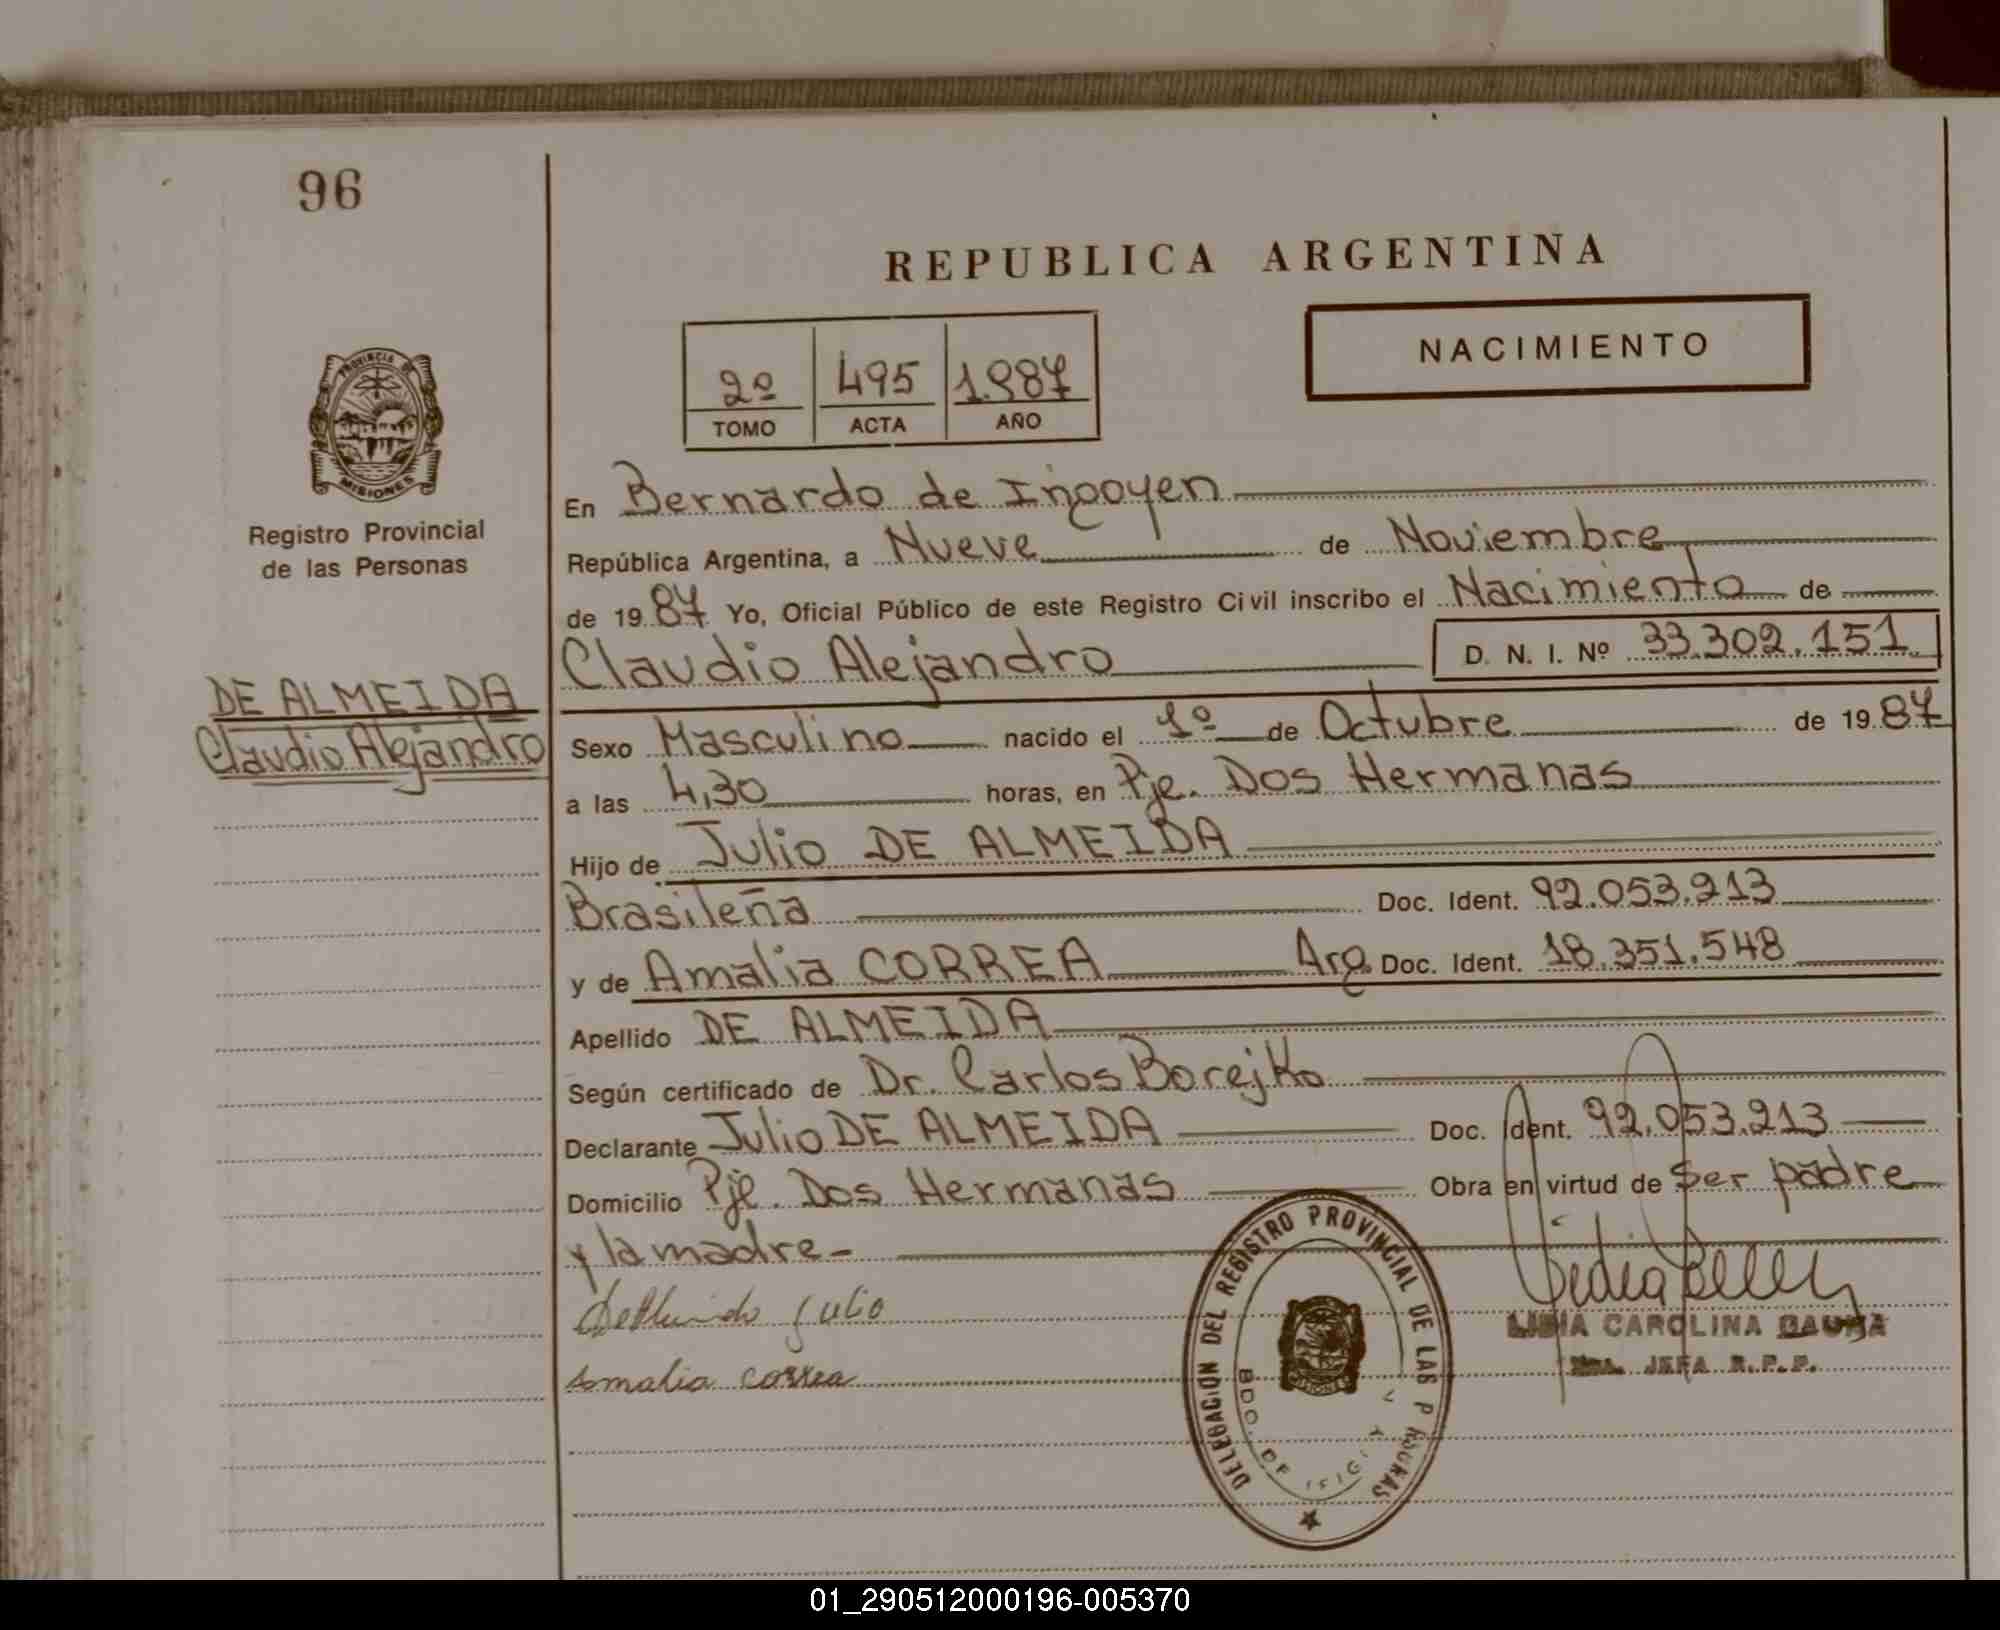 96
REPUBLICA ARGENTINA
NACIMIENTO
2º 495 1.987
TOMO ACTA AÑO
PROVINCIA DE
MISIONES
Registro Provincial
de las Personas
DE ALMEIDA
Claudio Alejandro
En Bernardo de Irigoyen
República Argentina, a Nueve de Noviembre
de 19 87 Yo, Oficial Público de este Registro Civil inscribo el Nacimiento de
Claudio Alejandro D. N. I. Nº 33.302.151
Sexo Masculino nacido el 1º de Octubre de 19 87
a las 4,30 horas, en Pje. Dos Hermanas
Hijo de Julio DE ALMEIDA
Brasileña Doc. Ident. 92.053.213
y de Amalia CORREA Arg. Doc. Ident. 18.351.548
Apellido DE ALMEIDA
Según certificado de Dr. Carlos Borejko
Declarante Julio DE ALMEIDA Doc. Ident. 92.053.213
Domicilio Pje. Dos Hermanas Obra en virtud de Ser padre
y la madre-
Julio
Amalia correa
DELEGACION DEL REGISTRO PROVINCIAL DE LAS P RSONAS
BDO. DE
MISIONES
LIDIA CAROLINA
JEFA R.P.P.
01_290512000196-005370